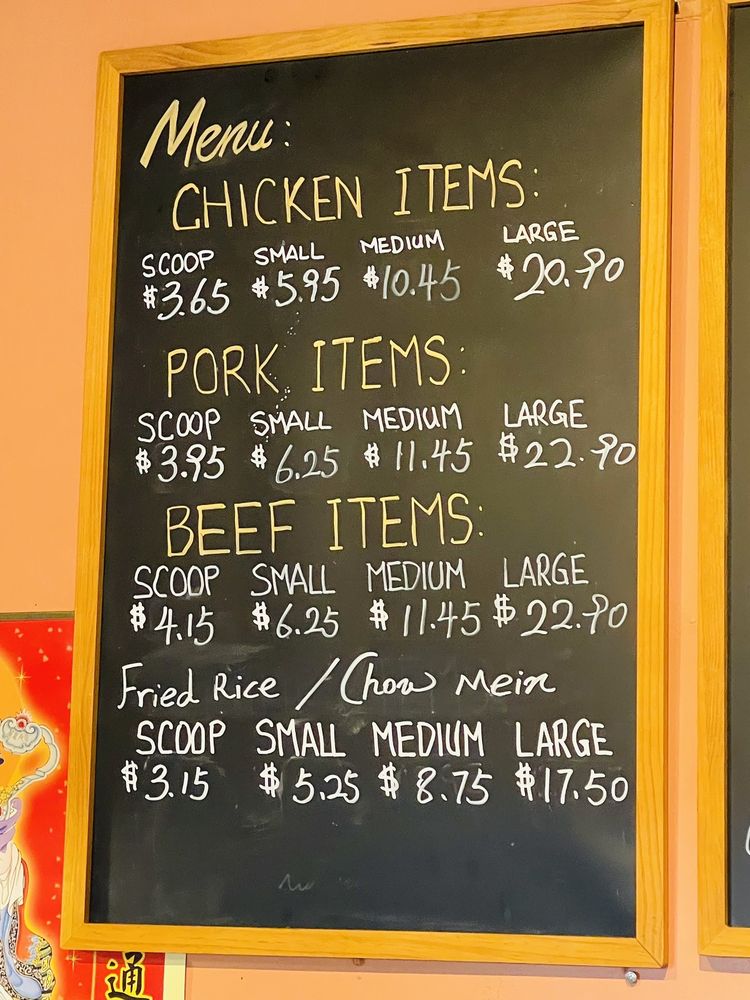 Menu:
CHICKEN ITEMS:
SCOOP SMALL MEDIUM LARGE
$3.65 $5.95 $10.45 $20.90
PORK ITEMS:
SCOOP SMALL MEDIUM LARGE
$3.95 $6.25 $11.45 $22.90
BEEF ITEMS:
SCOOP SMALL MEDIUM LARGE
$4.15 $6.25 $11.45 $22.90
Fried Rice / Chow Mein
SCOOP SMALL MEDIUM LARGE
$3.15 $5.25 $8.75 $17.50
通